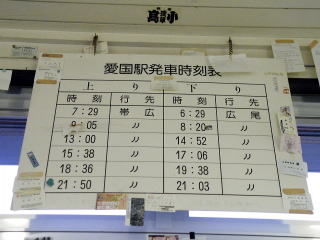 愛国駅発車時刻表
上り 下り
時刻 行先 時刻 行先
7:29 帯広 6:29 広尾
9:05 〃 8:20 〃
13:00 〃 14:52 〃
15:38 〃 17:06 〃
18:36 〃 19:38 〃
21:50 〃 21:03 〃